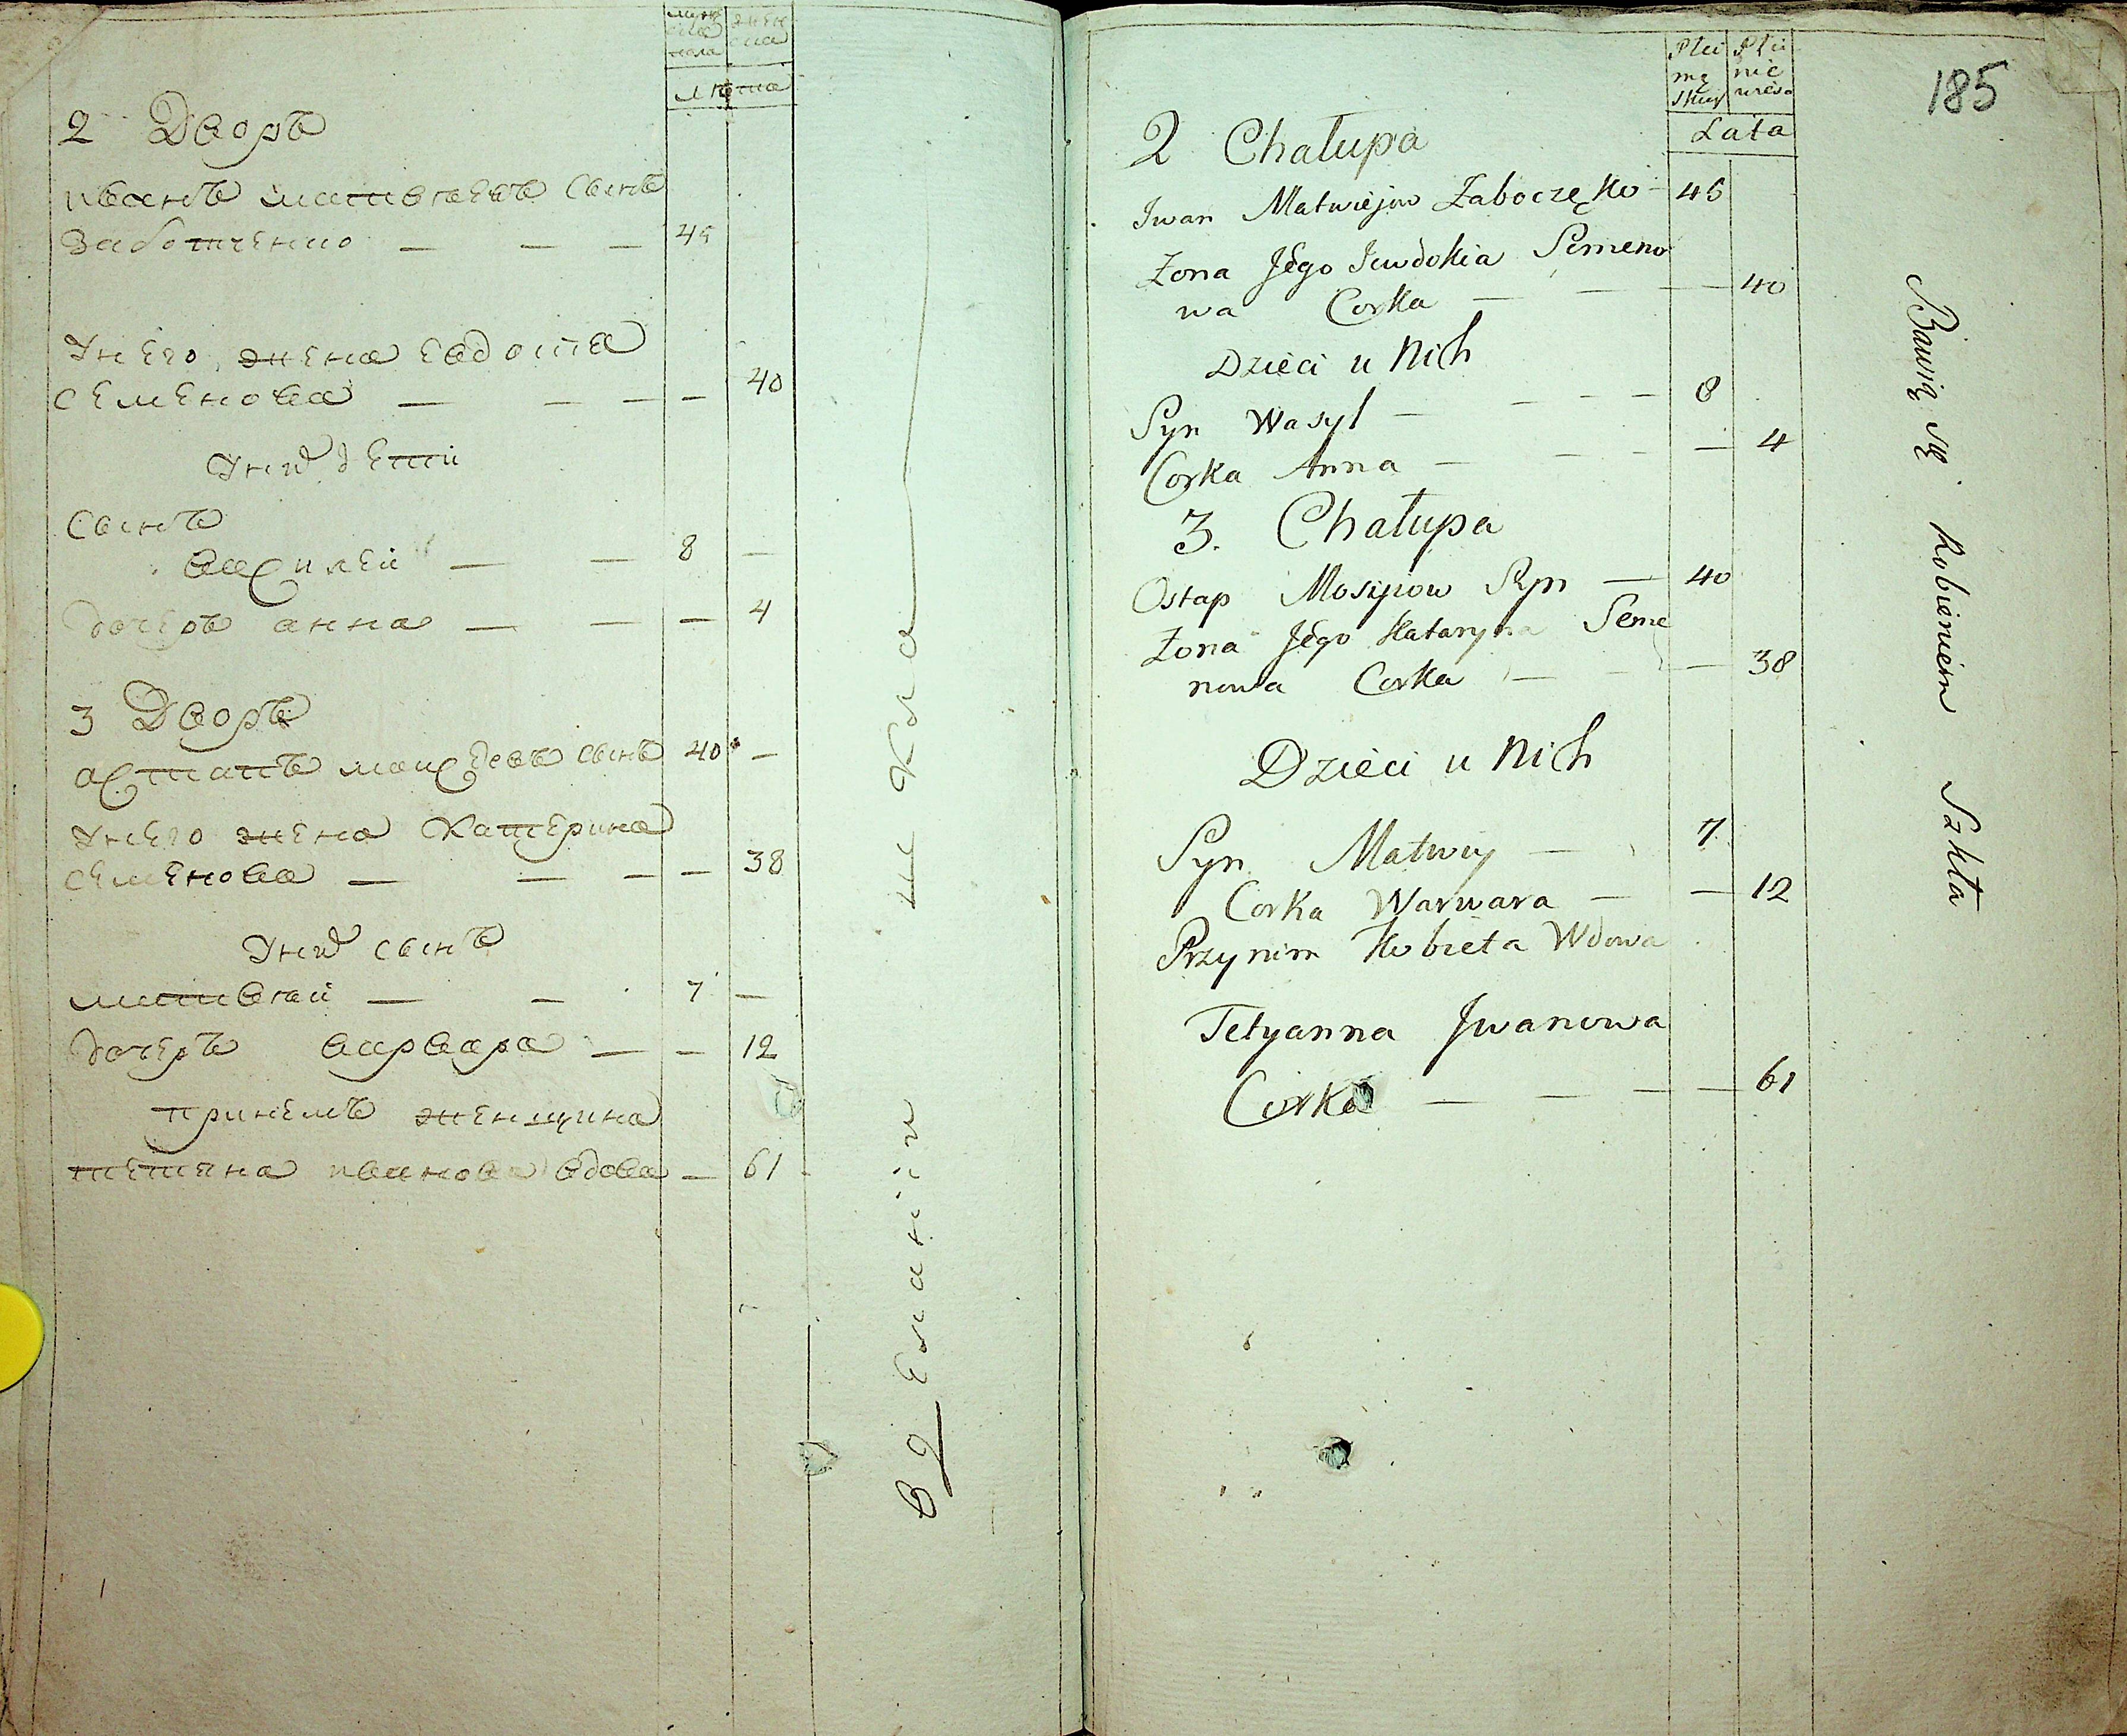 мужеска пола
женска
лета
2 Дворъ
иванъ матвѣевъ сынъ
Заботченко — — — 45
Унего жена евдокиа
семенова — — — — 40
Уних дети
сынъ
василей — — 8 —
дочеръ анна — — — 4
3 Дворъ
астапъ моисѣевъ сынъ 40 —
Унего жена Катерина
семенова — — — — 38
Уних сынъ
матвѣй — — 7 —
дочеръ варвара — — 12
принемъ женщина
тетяна иванова вдова — 61
185
Płci męskiey
Płci
Lata
2 Chałupa
Iwan Matwiejow Zaboczęko - 45
Zona Jego Iewdokia Semeno
wa Corka — — — 40
Dzieci u Nich
Syn Wasyl — — — — 8
Corka Anna — — — — 4
3. Chałupa
Ostap Mosijiow Syn — 40
Zona Jego Kataryna Seme
nowa Corka — — — 38
Dzieci u Nich
Syn Matwiy — 7
Corka Warwara — — 12
Przy nim Kobieta Wdowa
Tetyanna Iwanowa
Corka — — — — 61
Bawią się Robieniem Szkła